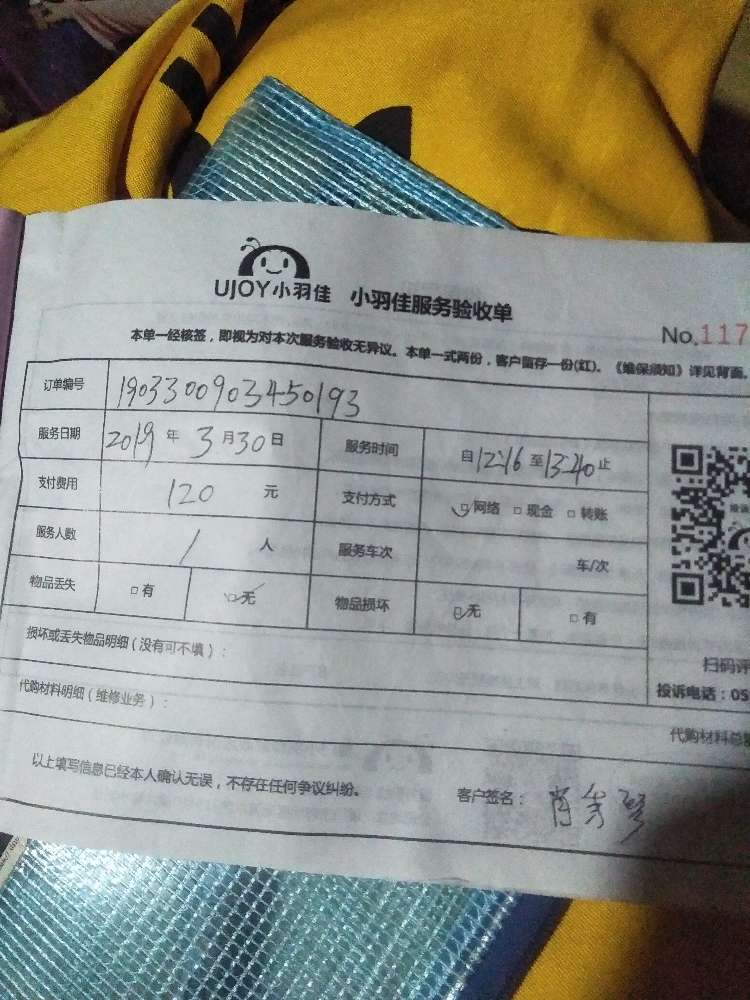 UJOY小羽佳 小羽佳服务验收单
No.117
本单一经核签，即视为对本次服务验收无异议。本单一式两份，客户留存一份(红)。《维保须知》详见背面。
订单编号 1903300903450193
服务日期 2019年3月30日 服务时间 自12:16至13:40止
支付费用 120元 支付方式 网络 现金 转账
服务人数 1人 服务车次 车/次
物品丢失 有 无 物品损坏 无 有
损坏或丢失物品明细（没有可不填）：
扫码评
投诉电话：05
代购材料明细（维修业务）：
代购材料总
以上填写信息已经本人确认无误，不存在任何争议纠纷。 客户签名：肖秀琴